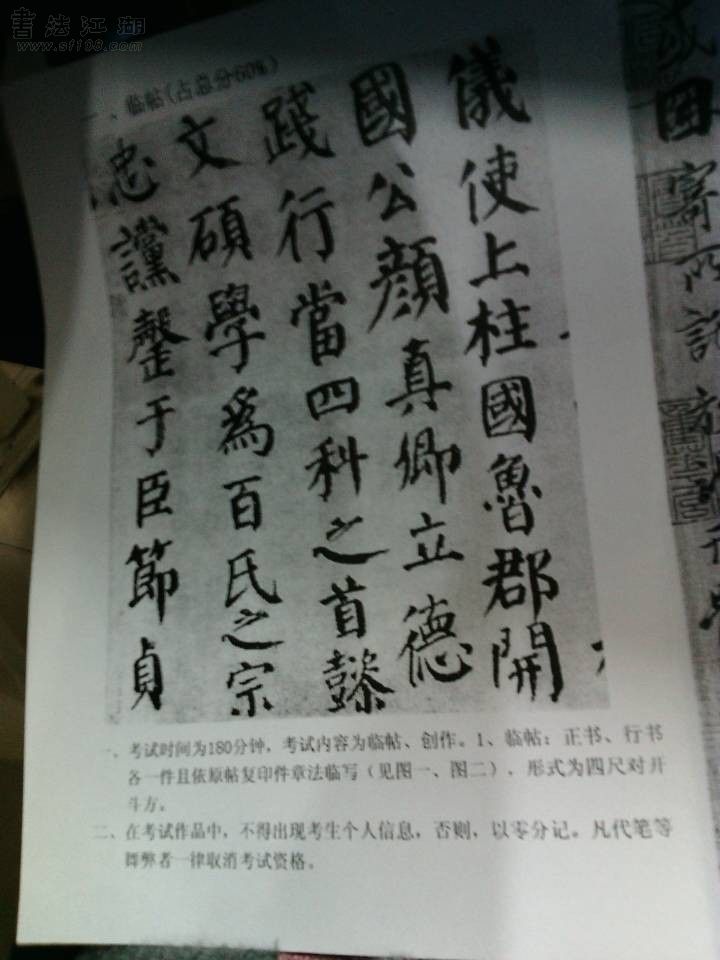 書法江湖
www.sf108.com
一、临帖(占总分60%)
儀使上柱國魯郡開
國公顔真卿立德
踐行當四科之首懿
文碩學爲百氏之宗
忠讜罄于臣節貞
一、考试时间为180分钟，考试内容为临帖、创作。1、临帖：正书、行书
各一件且依原帖复印件章法临写（见图一、图二），形式为四尺对开
斗方。
二、在考试作品中，不得出现考生个人信息，否则，以零分记。凡代笔等
舞弊者一律取消考试资格。